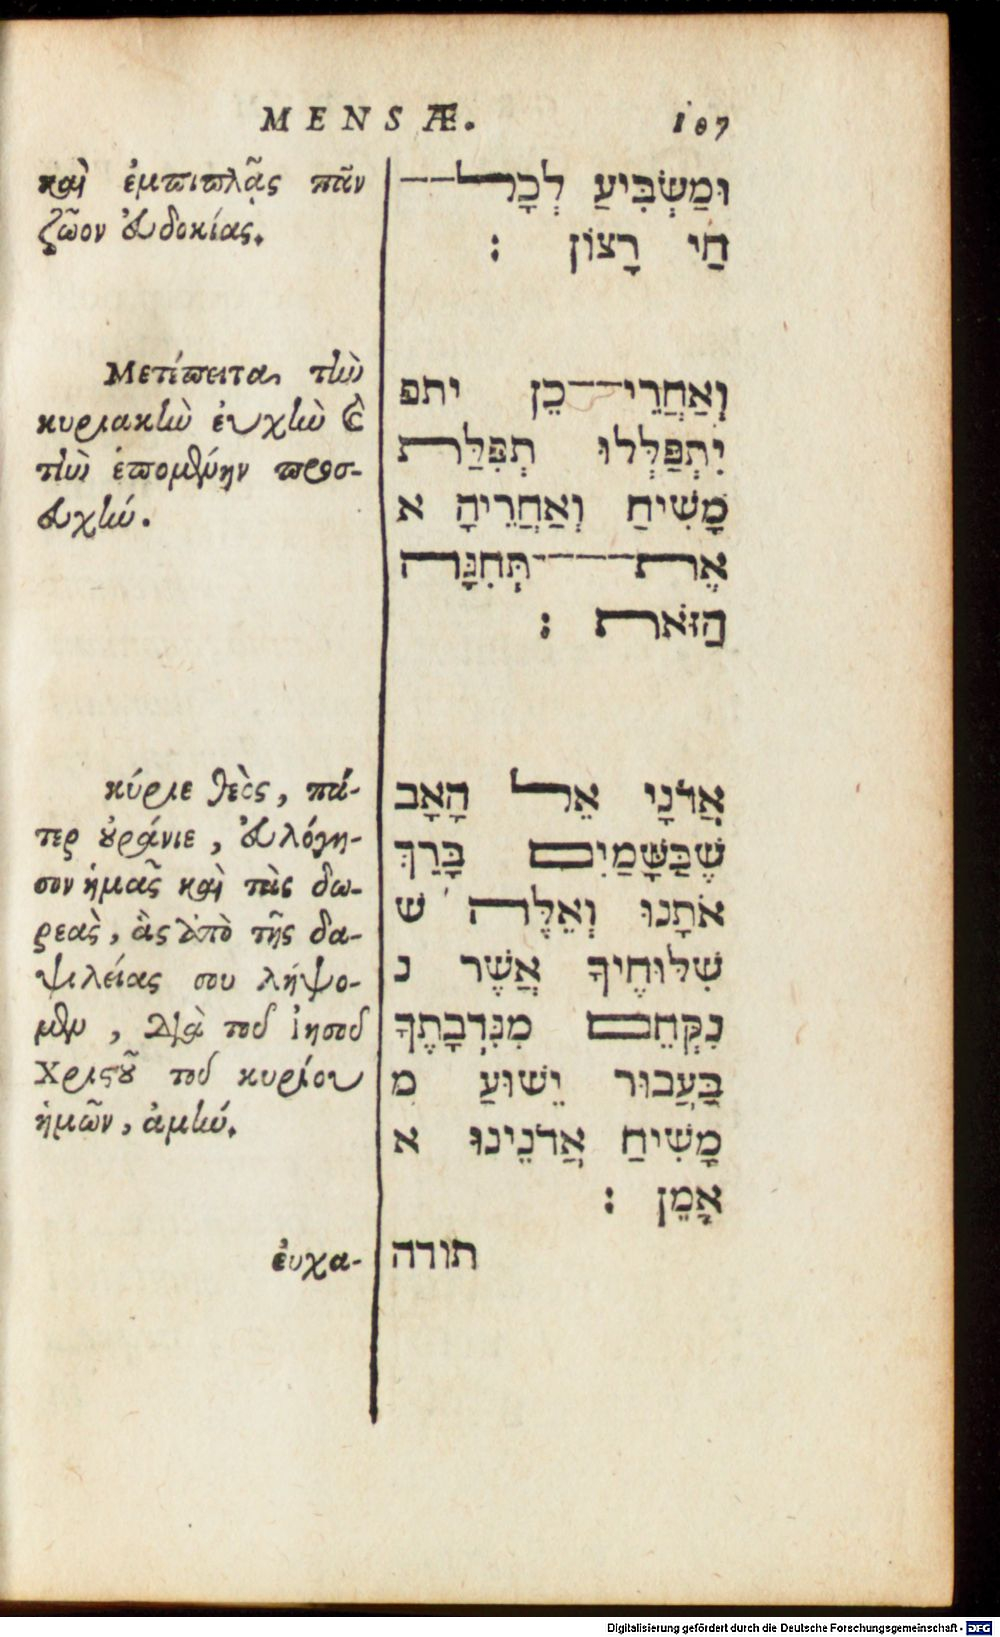 MENSÆ. 107
καὶ ἐμπιπλᾷς πᾶν
ζῶον εὐδοκίας.
Μετέπειτα τὴν
κυριακὴν εὐχὴν καὶ
τὴν ἑπομένην προσ-
ευχήν.
κύριε θεὸς, πά-
τερ οὐράνιε, εὐλόγη-
σον ἡμᾶς καὶ τὰς δω-
ρεὰς, ἃς ἀπὸ τῆς δα-
ψιλείας σου ληψό-
μεν, διὰ τοῦ Ἰησοῦ
Χριστοῦ τοῦ κυρίου
ἡμῶν, ἀμήν.
ἐυχα-
וּמַשְׂבִּיעַ לְכָל
חַי רָצוֹן :
וְאַחֲרֵי כֵן יתפ
יִתְפַּלְּלוּ תְּפִלַּת
מָשִׁיחַ וְאַחֲרֵיהָ א
אֶת תְּחִנָּה
הַזֹּאת :
אֲדֹנָי אֵל הָאָב
שֶׁבַּשָּׁמַיִם בָּרַךְ
אֹתָנוּ וְאֵלֶּה שׁ
שִׁלּוּחֶיךָ אֲשֶׁר נ
נִקְּחֵם מִנִּדְבָתֶךָ
בַּעֲבוּר יֵשׁוּעַ מ
מָשִׁיחַ אֲדֹנֵינוּ א
אָמֵן :
תודה
Digitalisierung gefördert durch die Deutsche Forschungsgemeinschaft - DFG